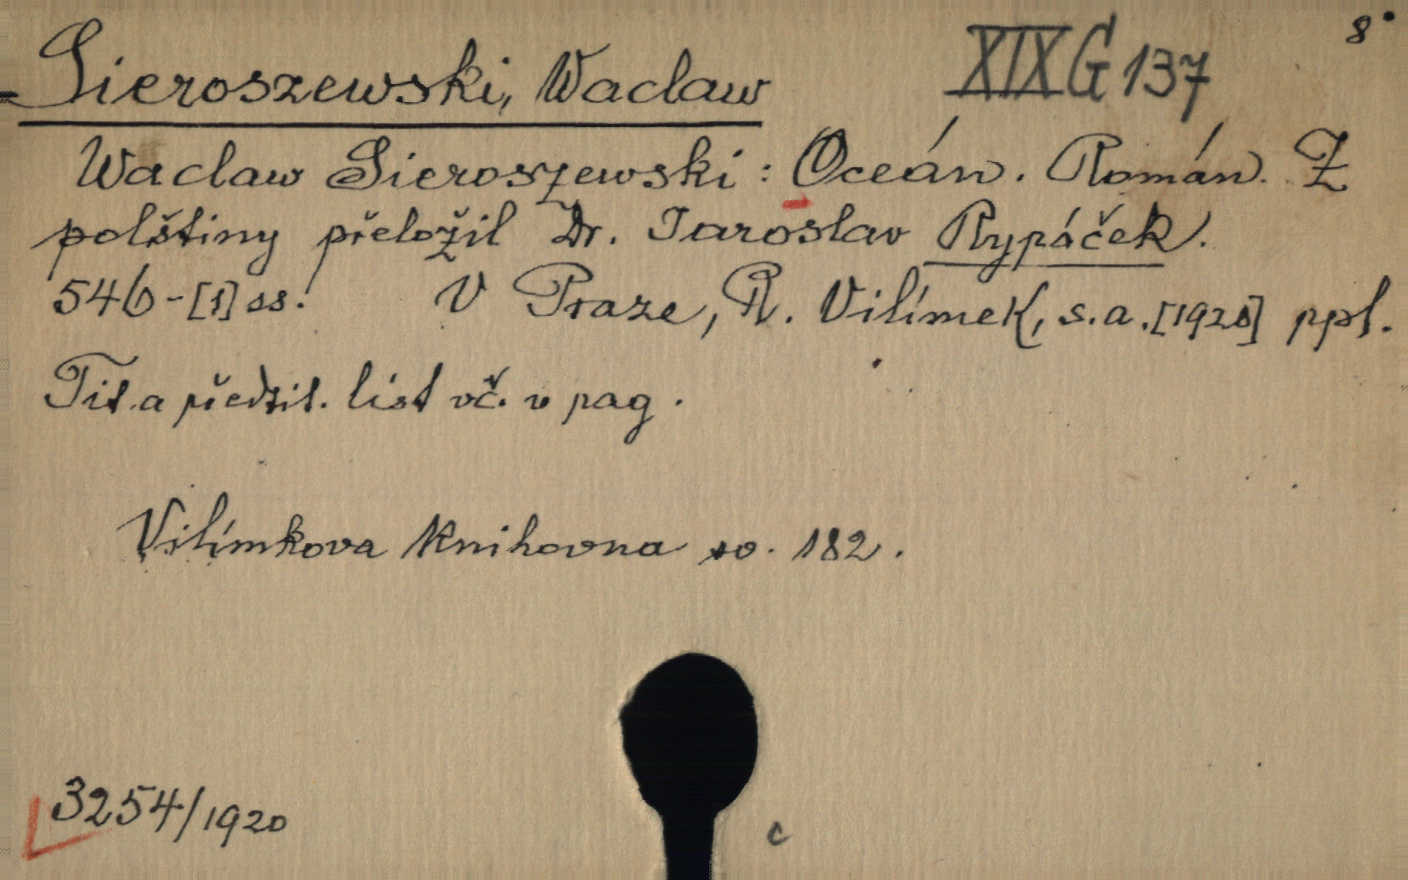 8°
Sieroszewski, Waclaw XIX G 137
Waclaw Sieroszewski: Oceán. Román. Z
polštiny přeložil Dr. Jaroslav Rypáček.
546-[1] ss. V Praze, R. Vilímek, s.a. ppl.
Tit. a předtit. list vč. v pag.
Vilímkova Knihovna sv. 182.
3254/1920
c